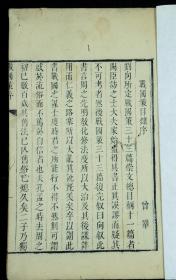 戰國策目錄序
曾鞏
劉向所定戰國策三十三篇崇文總目稱十一篇者
闕臣訪之士大夫家始盡得其書正其誤謬而疑其
不可考者然後戰國策三十三篇復完敘曰向敘此
書言周之先明教化修法度所以大治及其後謀詐
用而仁義之路塞所以大亂其說既美矣卒以謂此
書戰國之謀士度時君之所能行不得不然則可謂
惑於流俗而不篤於自信者也夫孔孟之時去周之
初已數百歲其舊法已亡舊俗已熄久矣二子乃獨